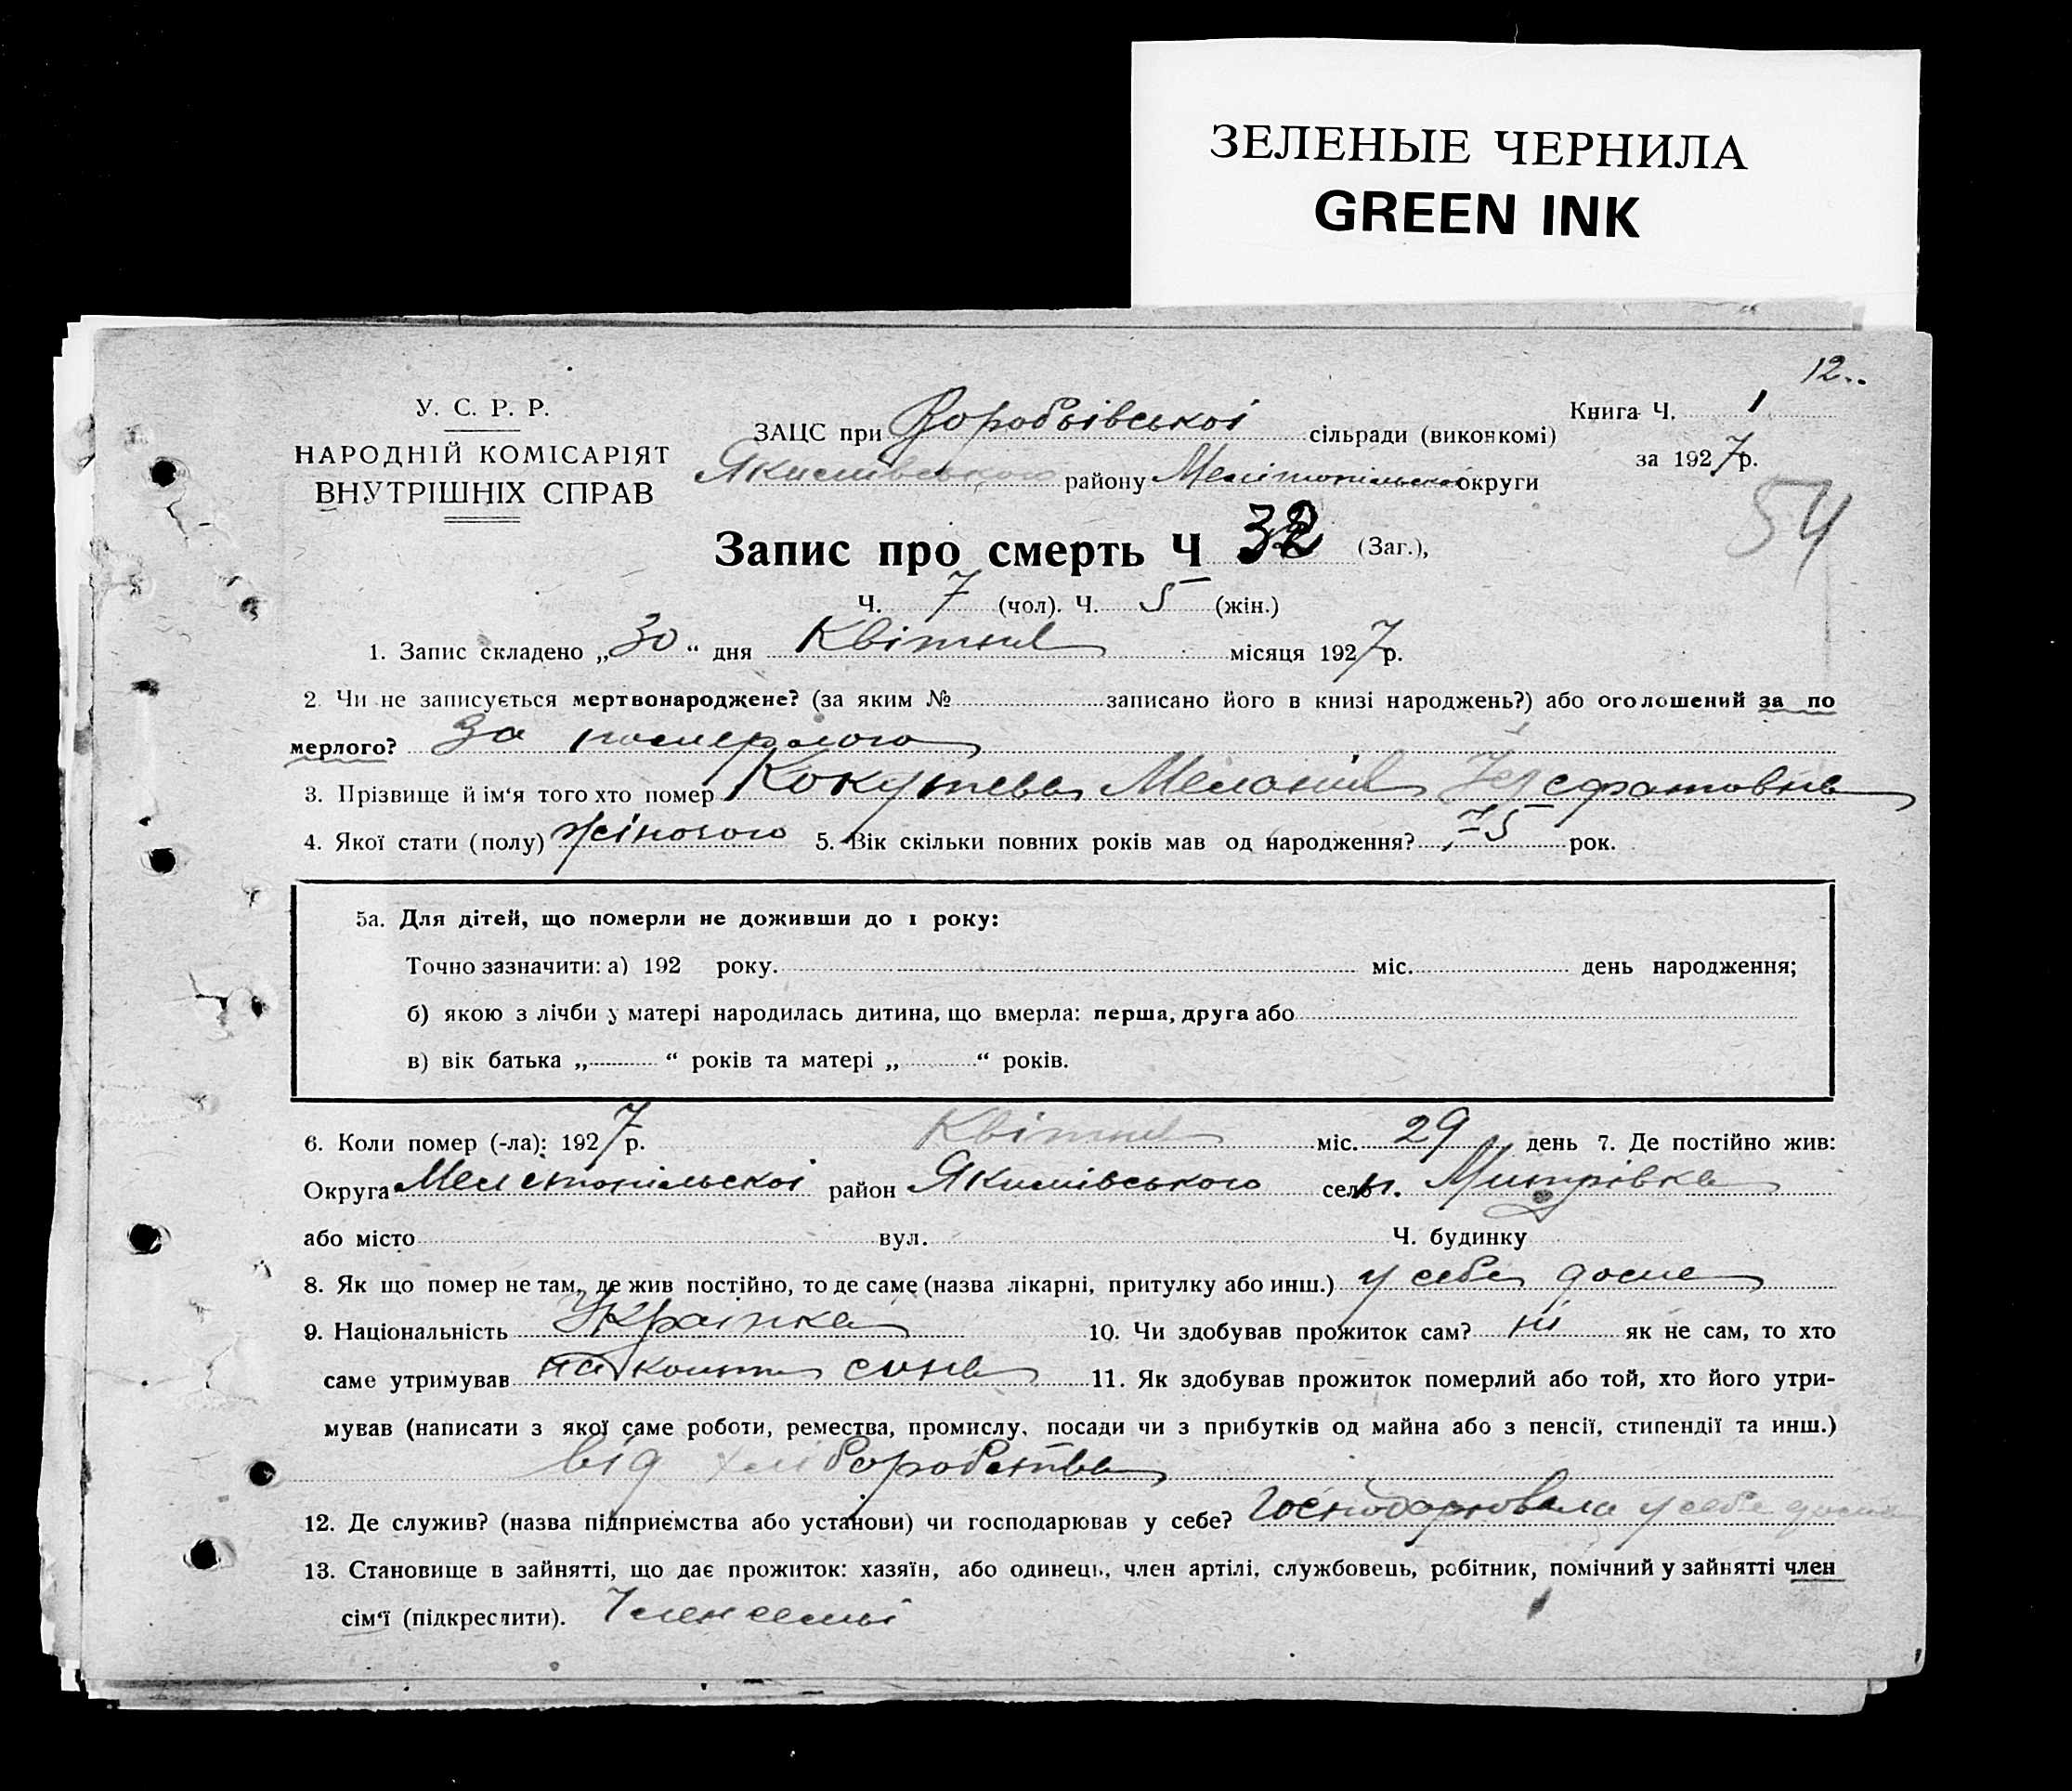 ЗЕЛЕНЫЕ ЧЕРНИЛА
GREEN INK
12
У. С. Р. Р.
НАРОДНІЙ КОМІСАРІЯТ
ВНУТРІШНІХ СПРАВ
ЗАЦС при Воробьівської сільради (виконкомі)
Якимівського району Мелітопільської округи
Книга Ч. 1
за 1927 р.
54
Запис про смерть Ч 32 (Заг.),
Ч. 7 (чол). Ч. 5 (жін.)
1. Запис складено „30“ дня Квітня місяця 1927 р.
2. Чи не записується мертвонароджене? (за яким № записано його в книзі народжень?) або оголошений за по
мерлого? За померлого
3. Прізвище й ім‘я того хто помер Меланія
4. Якої стати (полу) жіночого 5. Вік скільки повних років мав од народження? 75 рок.
5а. Для дітей, що померли не доживши до 1 року:
Точно зазначити: а) 192 року. міс. день народження;
б) якою з лічби у матері народилась дитина, що вмерла: перша, друга або
в) вік батька „ “ років та матері „ “ років.
6. Коли помер (-ла): 1927 р. Квітня міс. 29 день 7. Де постійно жив:
Округа Мелітопільської район Якимівського село
або місто вул. Ч. будинку
8. Як що помер не там, де жив постійно, то де саме (назва лікарні, притулку або инш.) у себе дома
9. Національність Українка 10. Чи здобував прожиток сам? ні як не сам, то хто
саме утримував на кошти сина 11. Як здобував прожиток померлий або той, хто його утри-
мував (написати з якої саме роботи, ремества, промислу, посади чи з прибутків од майна або з пенсії, стипендії та инш.)
від хліборобства
12. Де служив? (назва підприємства або установи) чи господарював у себе? Господарювала у себе дома
13. Становище в зайнятті, що дає прожиток: хазяїн, або одинець, член артілі, службовець, робітник, помічний у зайнятті член
сім‘ї (підкреслити). Член семьі